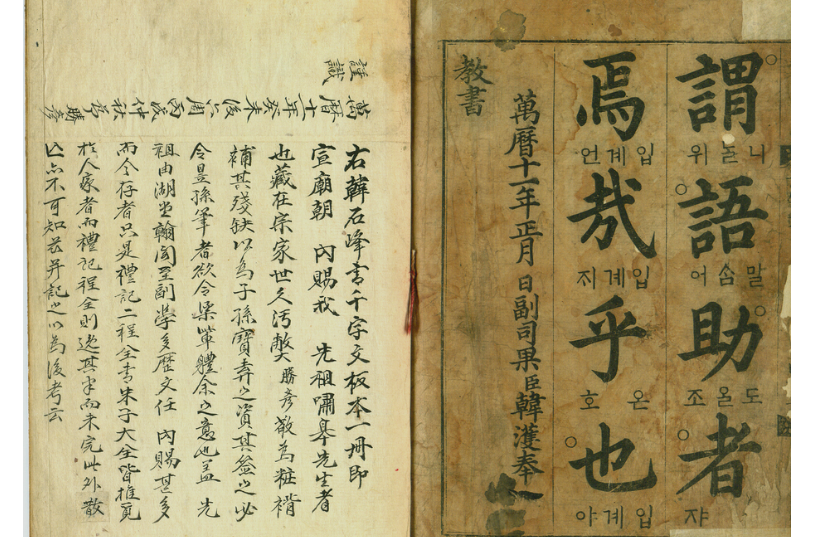 謂 니를 위
語 말솜 어
助 도올 조
者 쟈
焉 입계 언
哉 입계 지
乎 온 호
也 입계 야
萬曆十一年正月 日副司果臣韓濩奉
教書
右韓石峰書千字文板本一冊即
宣廟朝 內賜我 先祖嘯皋先生者
也藏在宗家世久汚弊勝彥敬為粧褙
補其殘缺以為子孫寶弆之資其簽之必
令昱孫筆者欲令渠輩體余之意也盖 先
祖由湖堂翰閣至副學多歷文任 內賜甚多
而今存者只是禮記二程全書朱子大全皆推覓
於人家者而禮記程全則逸其半而未完此外散
亡亦不可知茲并記之以為後考云
萬曆十一年癸未後六周丙戌仲秋 勝彥
謹識